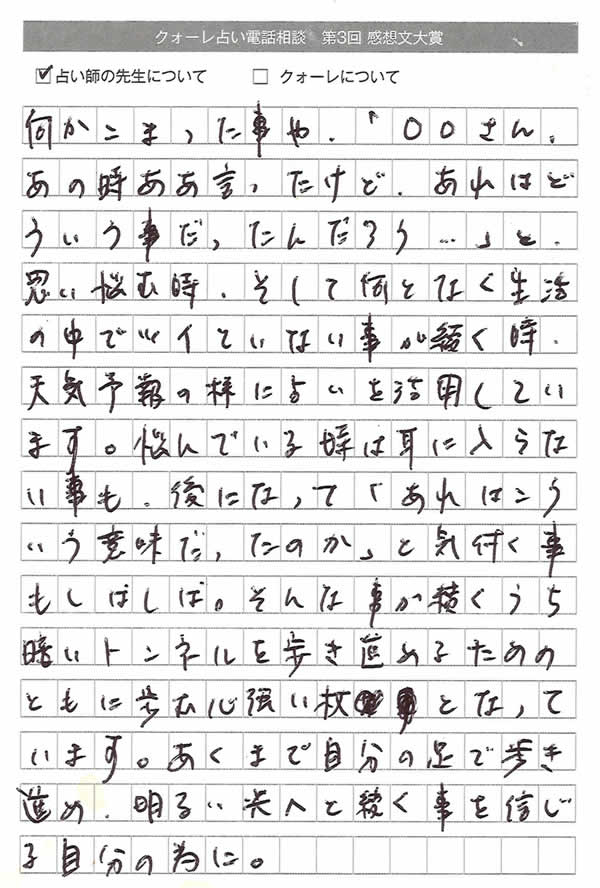 クォーレ占い電話相談　第3回 感想文大賞
☑占い師の先生について　□ クォーレについて
何かこまった事や、「〇〇さん、
あの時ああ言ったけど、あれはど
ういう事だったんだろう…」と、
思い悩む時、そして何となく生活
の中でツイていない事が続く時、
天気予報の様に占いを活用してい
ます。悩んでいる時は耳に入らな
い事も、後になって「あれはこう
いう意味だったのか」と気付く事
もしばしば。そんな事が積くうち
暗いトンネルを歩き進めるための
ともに歩む心強い杖となって
います。あくまで自分の足で歩き
進め、明るい光へと続く事を信じ
る自分の為に。